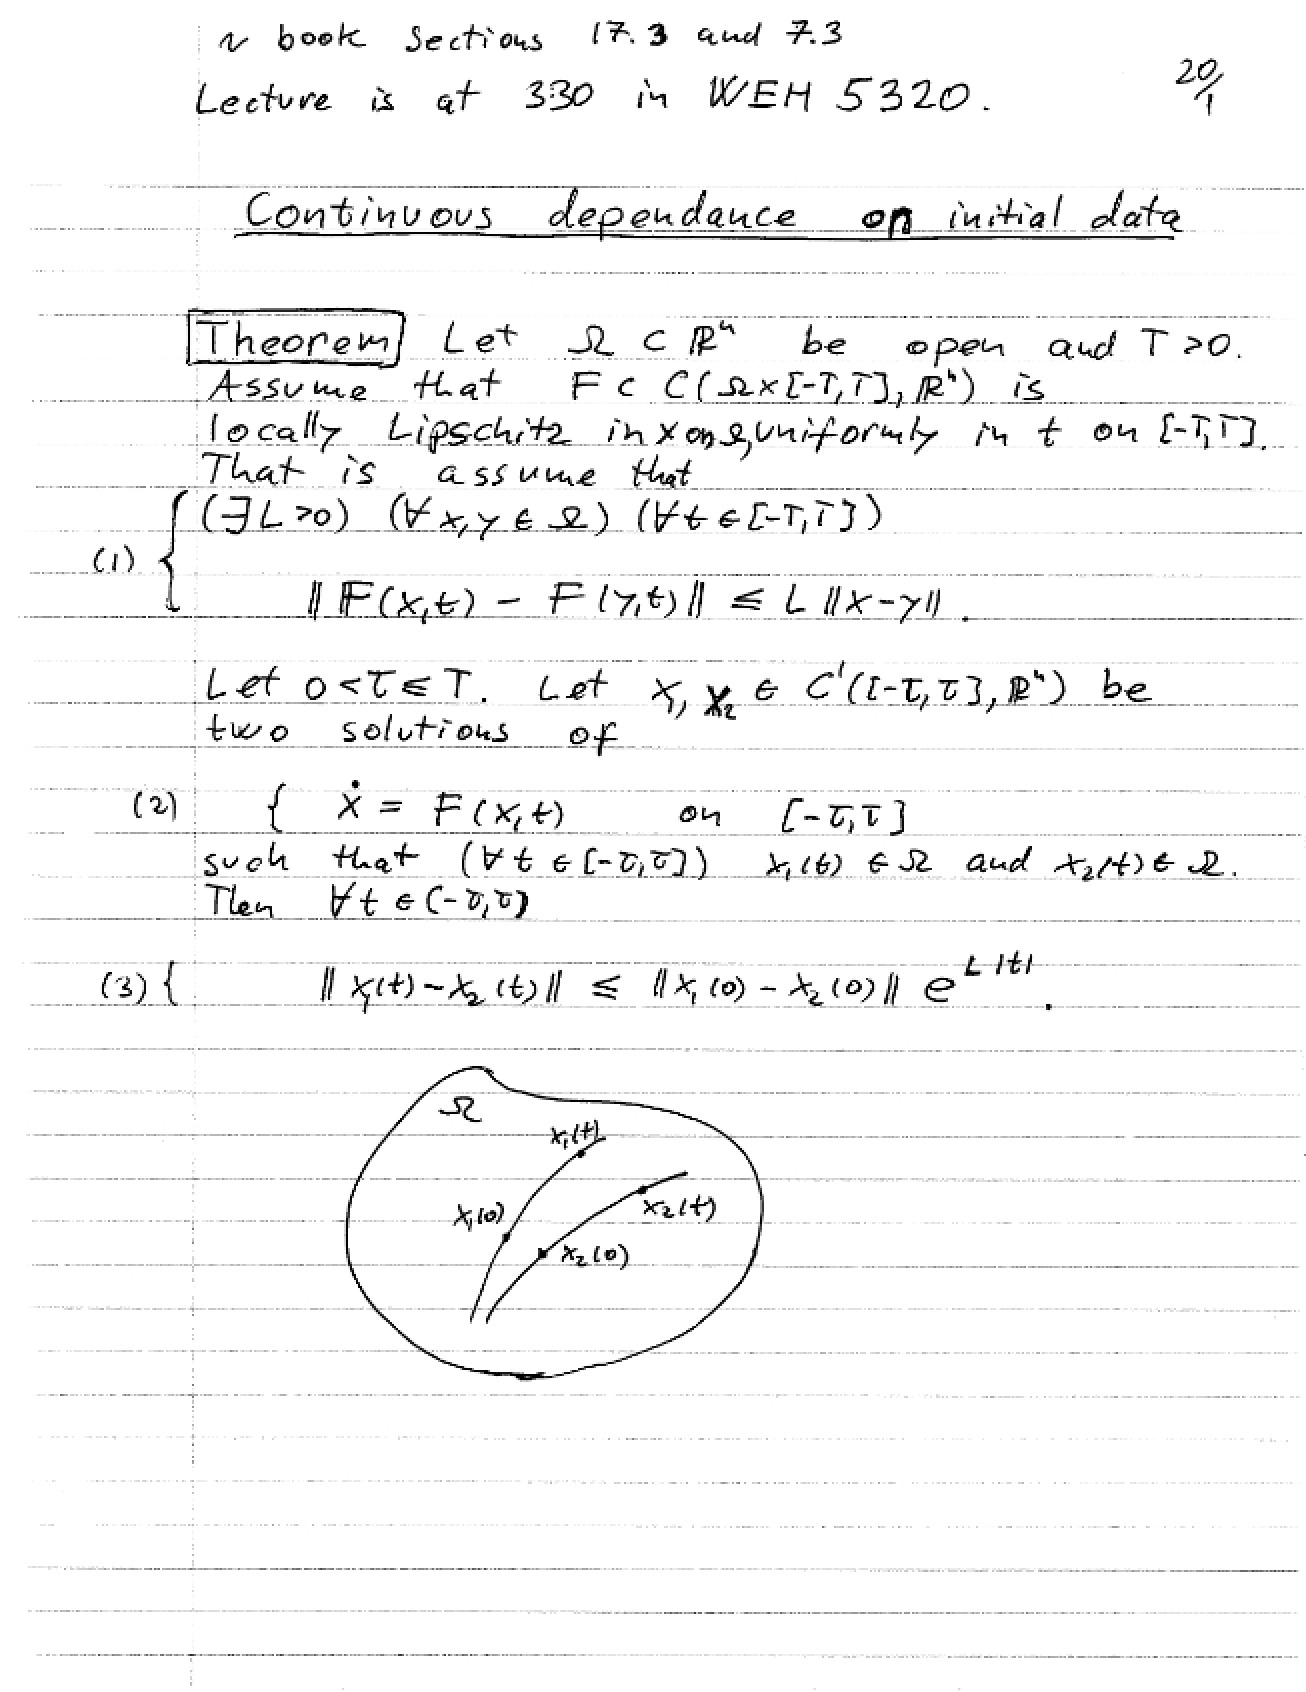 ~ book Sections 17.3 and 7.3
20/1
Lecture is at 330 in WEH 5320.
Continuous dependance on initial data
Theorem Let Ω ⊂ ℝⁿ be open and T>0.
Assume that F ⊂ C(Ω×[-T,T], ℝⁿ) is
locally Lipschitz in x on Ω, uniformly in t on [-T,T].
That is assume that
(∃L>0) (∀x,y ∈ Ω) (∀t ∈ [-T,T])
(1) {
‖F(x,t) - F(y,t)‖ ≤ L‖x-y‖.
Let 0<τ≤T. Let x₁, x₂ ∈ C¹([-τ,τ], ℝⁿ) be
two solutions of
(2) { ẋ = F(x,t) on [-τ,τ]
such that (∀t ∈ [-τ,τ]) x₁(t) ∈ Ω and x₂(t) ∈ Ω.
Then ∀t ∈ (-τ,τ)
(3) { ‖x₁(t)-x₂(t)‖ ≤ ‖x₁(0)-x₂(0)‖ e^{L|t|}.
Ω
x₁(t)
x₁(0) x₂(t)
x₂(0)